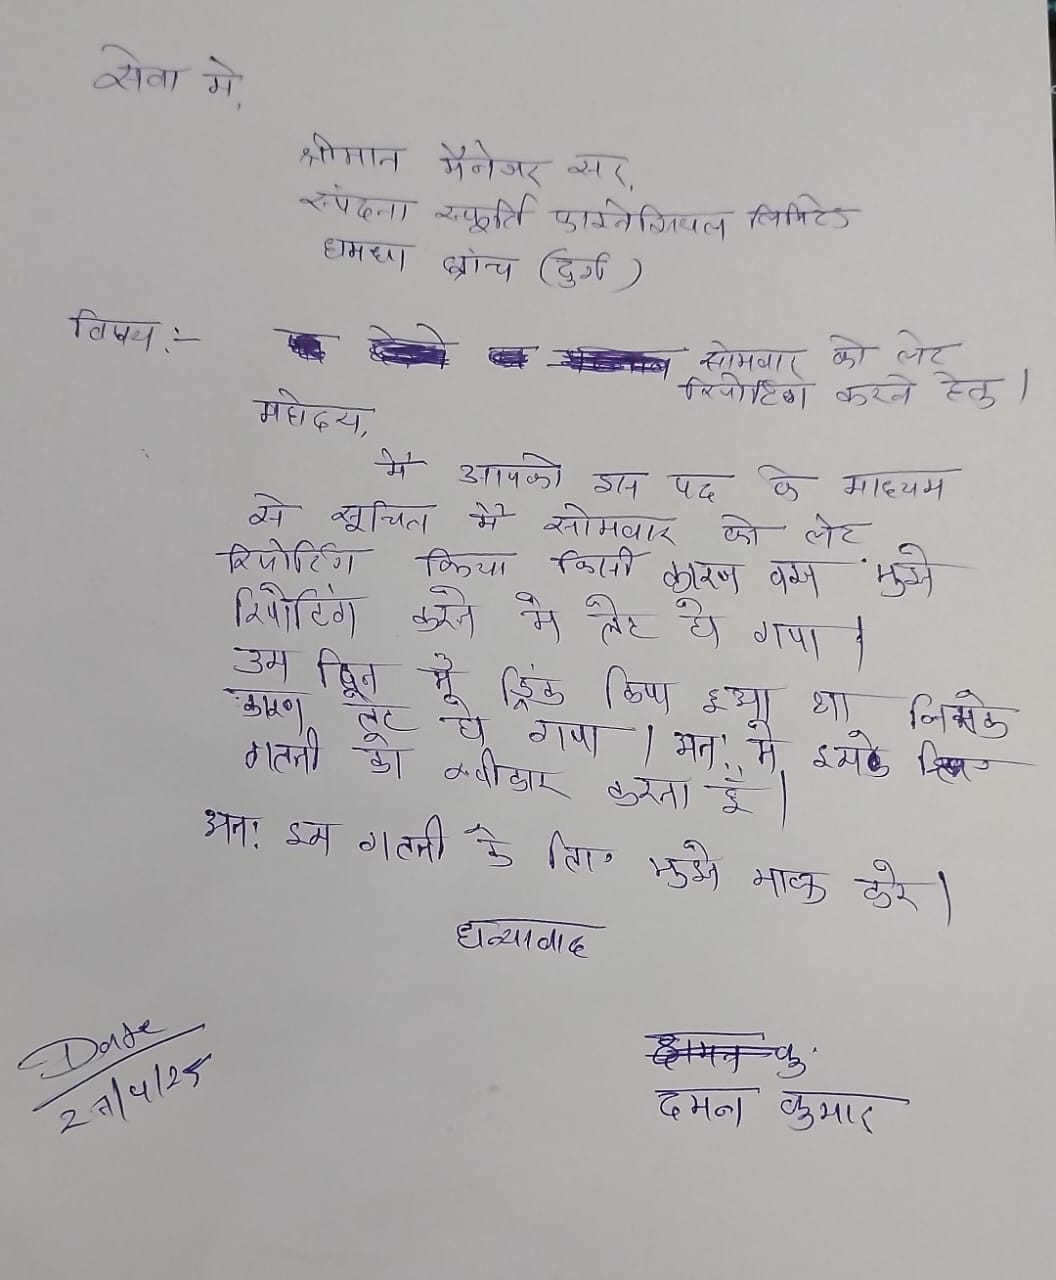 सेवा मे,
श्रीमान मैनेजर सर,
स्पंदना स्फूर्ति फाइनेंसियल लिमिटेड
धमधा ब्रांच (दुर्ग)
विषय :- सोमवार को लेट
रिपोर्टिंग करने हेतु।
महोदय,
मै आपको इस पद के माध्यम
से सूचित मै सोमवार को लेट
रिपोर्टिंग किया किसी कारण वस मुझे
रिर्पोटिंग करने मे लेट हो गया।
उस दिन मै ड्रिंक किया हुआ था जिसके
कारण लेट हो गया। अतः मे इसके
गलती को स्वीकार करता हूँ।
अतः इस गलती के लिए मुझे माफ करे।
धन्यावाद
Date
कु.
दमन कुमार